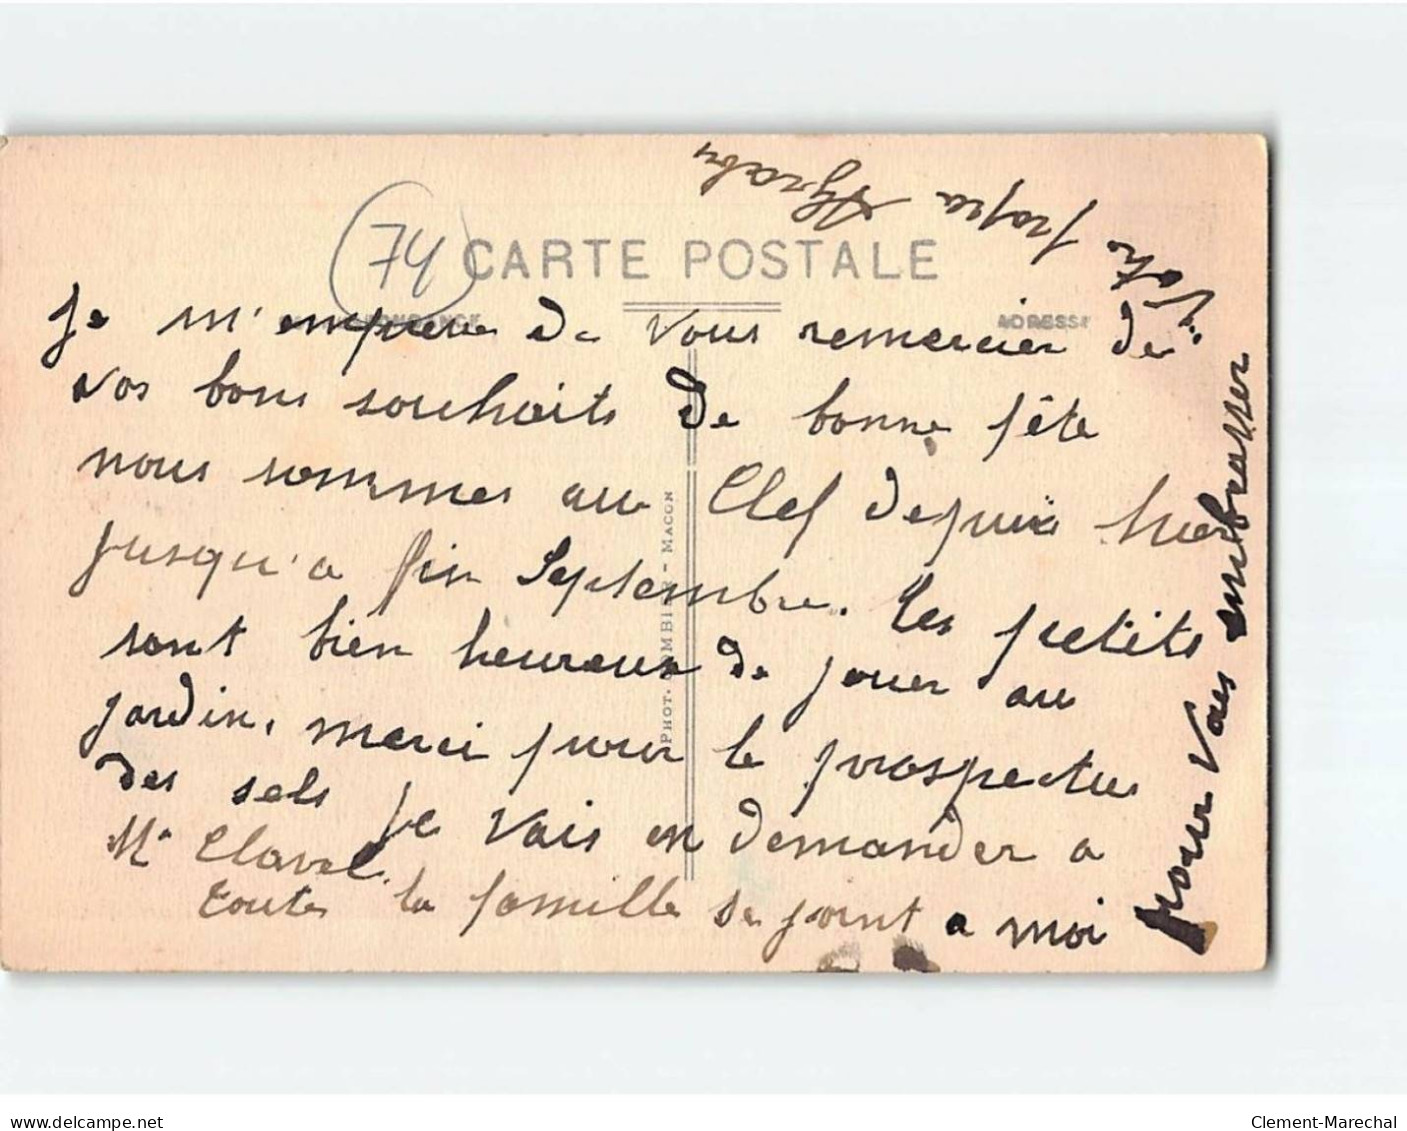 74
CARTE POSTALE
ADRESSE
Je m'empresse de vous remercier de
vos bons souhaits de bonne fête
nous sommes au Clef depuis hier
jusqu'a fin Septembre. Les petits
sont bien heureux de jouer au
jardin, merci pour le prospectus
des sels je vais en demander a
Mr Clavel.
toute la famille se joint a moi
pour vous embrasser
Votre
PHOT. COMBIER - MACON
Clement-Marechal
www.delcampe.net